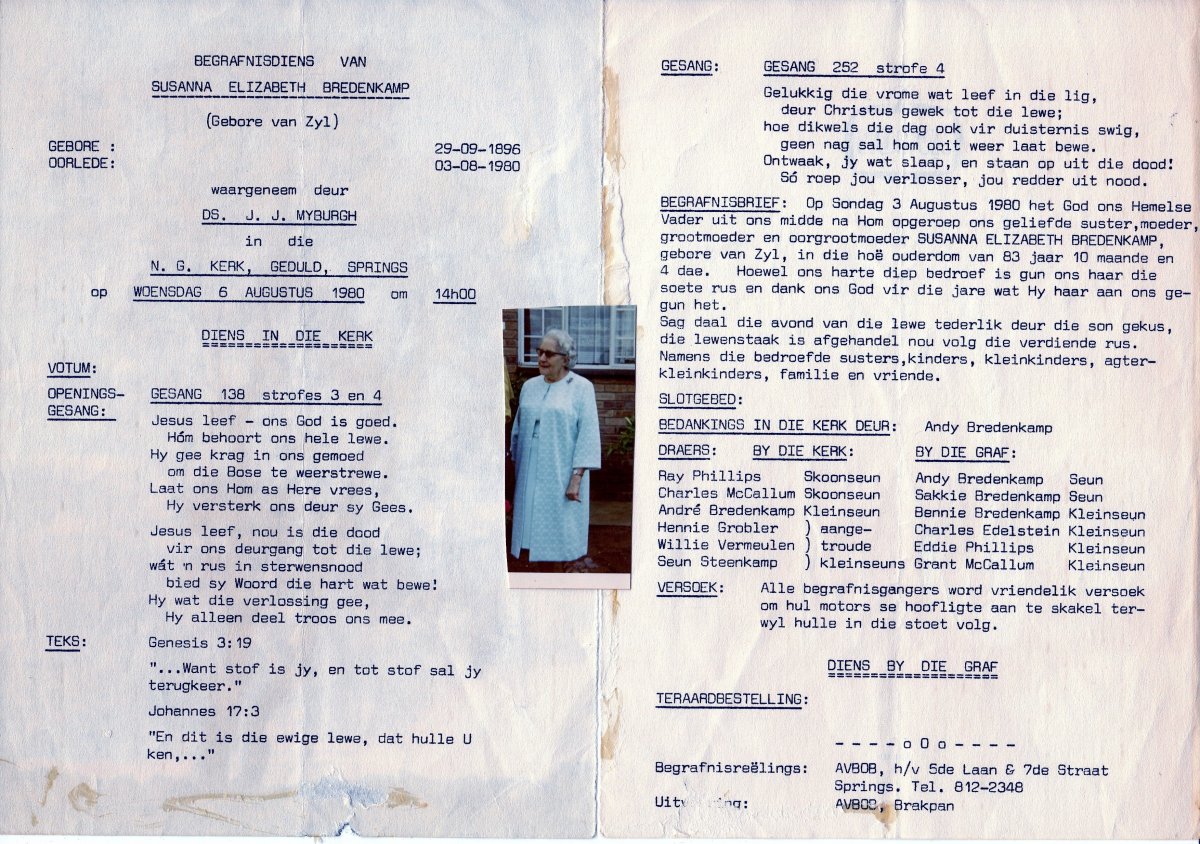 BEGRAFNISDIENS VAN
SUSANNA ELIZABETH BREDENKAMP
(Gebore van Zyl)
GEBORE : 29-09-1896
OORLEDE: 03-08-1980
waargeneem deur
DS. J. J. MYBURGH
in die
N. G. KERK, GEDULD, SPRINGS
op WOENSDAG 6 AUGUSTUS 1980 om 14h00
DIENS IN DIE KERK
VOTUM:
OPENINGS- GESANG 138 strofes 3 en 4
GESANG:
Jesus leef - ons God is goed.
Hóm behoort ons hele lewe.
Hy gee krag in ons gemoed
om die Bose te weerstrewe.
Laat ons Hom as Here vrees,
Hy versterk ons deur sy Gees.
Jesus leef, nou is die dood
vir ons deurgang tot die lewe;
wát 'n rus in sterwensnood
bied sy Woord die hart wat bewe!
Hy wat die verlossing gee,
Hy alleen deel troos ons mee.
TEKS: Genesis 3:19
"...Want stof is jy, en tot stof sal jy
terugkeer."
Johannes 17:3
"En dit is die ewige lewe, dat hulle U
ken,..."
GESANG: GESANG 252 strofe 4
Gelukkig die vrome wat leef in die lig,
deur Christus gewek tot die lewe;
hoe dikwels die dag ook vir duisternis swig,
geen nag sal hom ooit weer laat bewe.
Ontwaak, jy wat slaap, en staan op uit die dood!
Só roep jou verlosser, jou redder uit nood.
BEGRAFNISBRIEF: Op Sondag 3 Augustus 1980 het God ons Hemelse
Vader uit ons midde na Hom opgeroep ons geliefde suster,moeder,
grootmoeder en oorgrootmoeder SUSANNA ELIZABETH BREDENKAMP,
gebore van Zyl, in die hoë ouderdom van 83 jaar 10 maande en
4 dae. Hoewel ons harte diep bedroef is gun ons haar die
soete rus en dank ons God vir die jare wat Hy haar aan ons ge-
gun het.
Sag daal die avond van die lewe tederlik deur die son gekus,
die lewenstaak is afgehandel nou volg die verdiende rus.
Namens die bedroefde susters,kinders, kleinkinders, agter-
kleinkinders, familie en vriende.
SLOTGEBED:
BEDANKINGS IN DIE KERK DEUR: Andy Bredenkamp
DRAERS: BY DIE KERK: BY DIE GRAF:
Ray Phillips Skoonseun Andy Bredenkamp Seun
Charles McCallum Skoonseun Sakkie Bredenkamp Seun
André Bredenkamp Kleinseun Bennie Bredenkamp Kleinseun
Hennie Grobler ) aange- Charles Edelstein Kleinseun
Willie Vermeulen ) troude Eddie Phillips Kleinseun
Seun Steenkamp ) kleinseuns Grant McCallum Kleinseun
VERSOEK: Alle begrafnisgangers word vriendelik versoek
om hul motors se hoofligte aan te skakel ter-
wyl hulle in die stoet volg.
DIENS BY DIE GRAF
TERAARDBESTELLING:
- - - - o 0 o - - - -
Begrafnisreëlings: AVBOB, h/v 5de Laan & 7de Straat
Springs. Tel. 812-2348
AVBOB, Brakpan